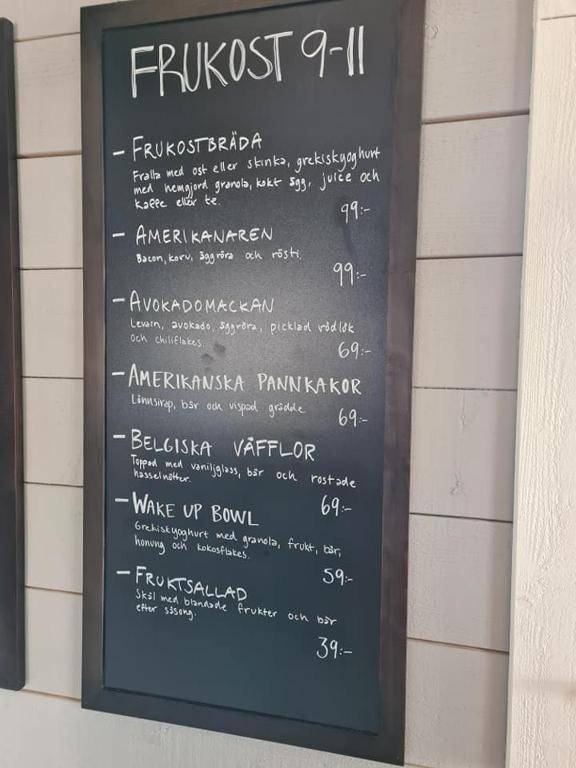 FRUKOST 9-11
- FRUKOSTBRÄDA
Fralla med ost eller skinka, grekiskyoghurt
med hemgjord granola, kokt ägg, juice och
kaffe eller te.
99:-
- AMERIKANAREN
Bacon, korv, äggröra och rösti.
99:-
- AVOKADOMACKAN
Levain, avokado, äggröra, picklad rödlök
och chiliflakes.
69:-
- AMERIKANSKA PANNKAKOR
Lönnsirap, bär och vispad grädde
69:-
- BELGISKA VÅFFLOR
Toppad med vaniljglass, bär och rostade
hasselnötter.
69:-
- WAKE UP BOWL
Grekiskyoghurt med granola, frukt, bär,
honung och kokosflakes.
59:-
- FRUKTSALLAD
Skål med blandade frukter och bär
efter säsong.
39:-